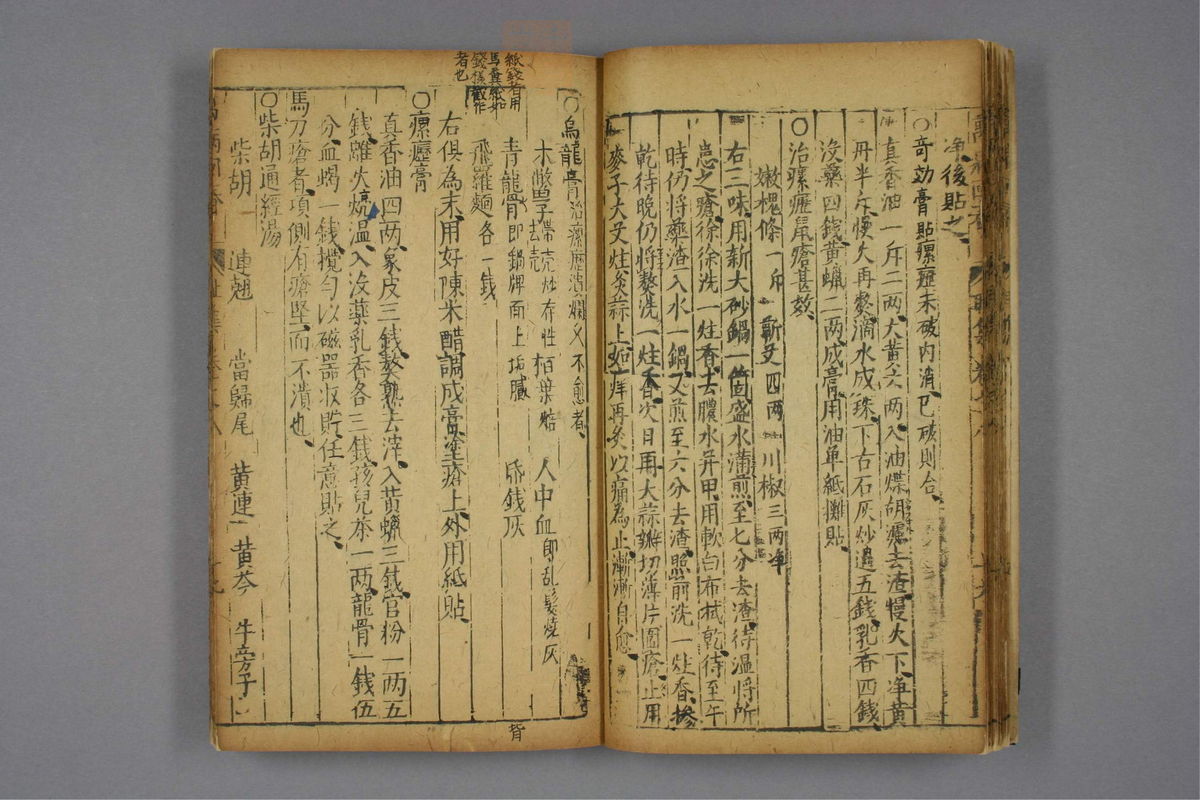 淨後貼之
○奇効膏貼瘰癧未破內消已破則合
真香油一斤二兩大黃六兩入油煠胡濾去渣慢火下淨黃
丹半斤慢火再熬滴水成珠下古石灰炒過五錢乳香四錢
沒藥四錢黃蠟二兩成膏用油单紙攤貼
○治瘰癧鼠瘡甚効
嫩槐條一斤 蘄艾四兩 川椒三兩淨
右三味用新大砂鍋一箇盛水滿煎至七分去渣待溫將所
患之瘡徐徐洗一炷香去膿水并甲用軟白布拭乾待至午
時仍將藥渣入水一鍋又煎至六分去渣照前洗一炷香摻
乾待晚仍將熬洗一炷香次日再用大蒜瓣切薄片圍瘡止用
麥子大艾炷灸蒜上如痒再灸以痛為止漸漸自愈
○烏龍膏治瘰癧潰爛久不愈者
木鱉子帶壳炒存性去壳 栢葉焙 人中血即乱髮燒灰
青龍骨即鍋牌面上垢膩 昏錢灰
飛羅麵各一錢
右俱為末用好陳米醋調成膏塗瘡上外用紙貼
紙錢有用
馬糞紙如
錢樣截作
者也
○瘰癧膏
真香油四兩象皮三錢熬熟去滓入黃蠟三錢官粉一兩五
錢離火炕溫入沒藥乳香各三錢孩兒茶一兩龍骨一錢伍
分血蝎一錢攪勻以磁器收貯任意貼之
馬刀瘡者項側有瘡堅而不潰也
○柴胡通經湯
柴胡 連翹 當歸尾 黃連 黃芩 牛旁子
背